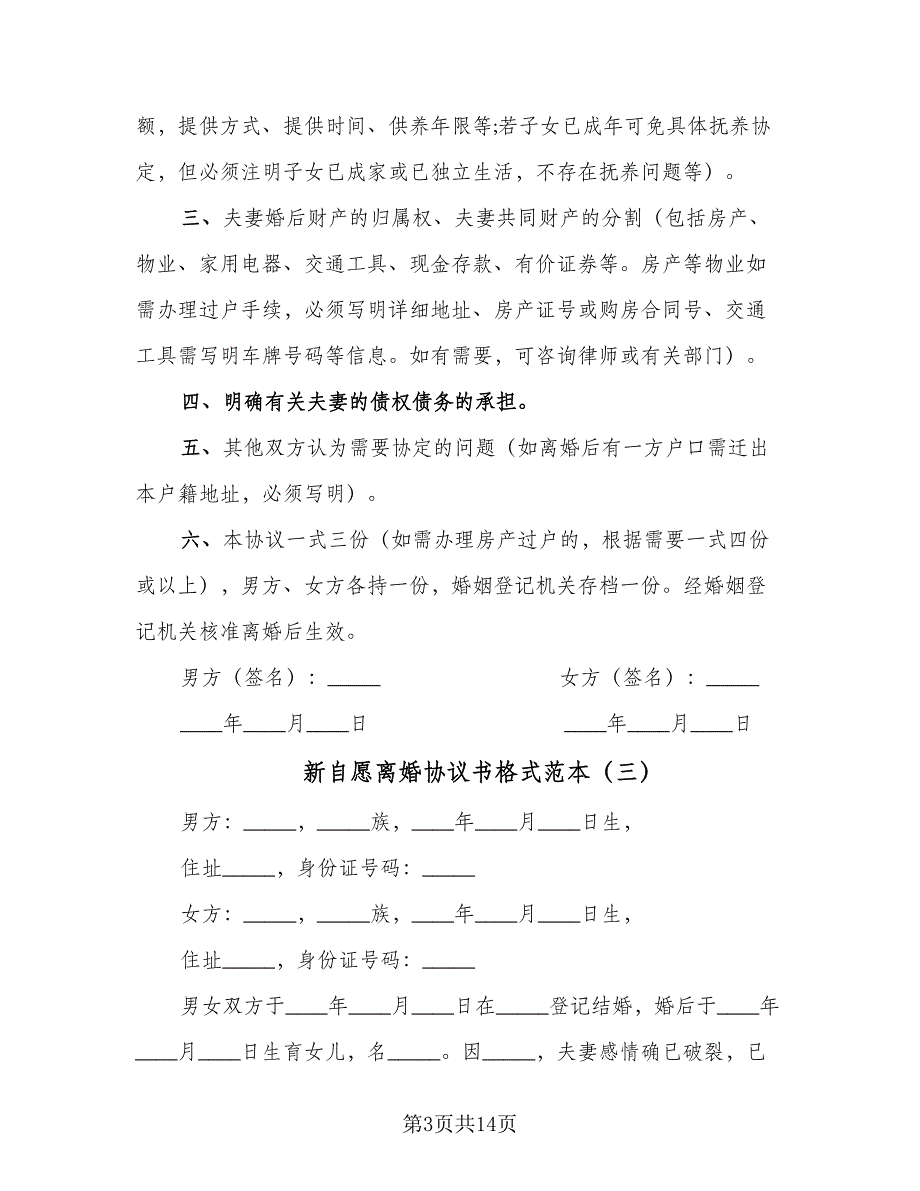 额，提供方式、提供时间、供养年限等;若子女已成年可免具体抚养协
定，但必须注明子女已成家或已独立生活，不存在抚养问题等）。
三、夫妻婚后财产的归属权、夫妻共同财产的分割（包括房产、
物业、家用电器、交通工具、现金存款、有价证券等。房产等物业如
需办理过户手续，必须写明详细地址、房产证号或购房合同号、交通
工具需写明车牌号码等信息。如有需要，可咨询律师或有关部门）。
四、明确有关夫妻的债权债务的承担。
五、其他双方认为需要协定的问题（如离婚后有一方户口需迁出
本户籍地址，必须写明）。
六、本协议一式三份（如需办理房产过户的，根据需要一式四份
或以上），男方、女方各持一份，婚姻登记机关存档一份。经婚姻登
记机关核准离婚后生效。
男方（签名）：_____ 女方（签名）：_____
____年____月____日 ____年____月____日
新自愿离婚协议书格式范本（三）
男方：_____，_____族，____年____月____日生，
住址_____，身份证号码：_____
女方：_____，_____族，____年____月____日生，
住址_____，身份证号码：_____
男女双方于____年____月____日在_____登记结婚，婚后于____年
____月____日生育女儿，名_____。因_____，夫妻感情确已破裂，已
第3页共14页